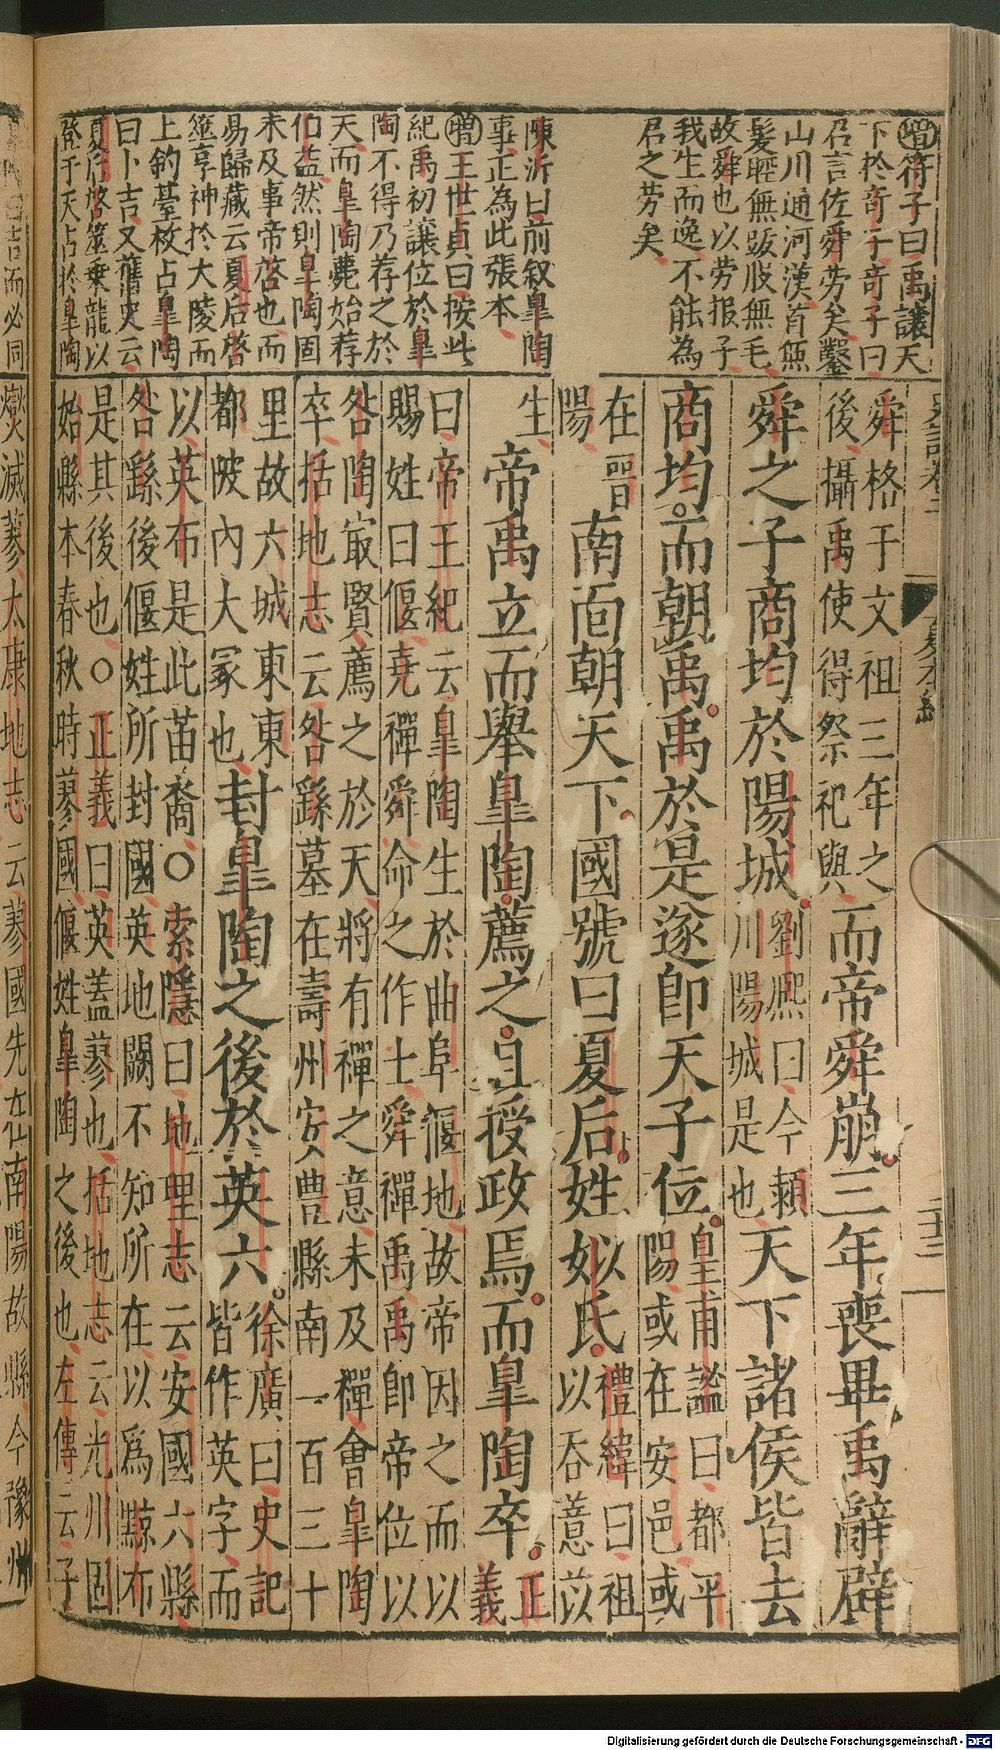 增符子曰禹讓天
下於奇子奇子曰
君言佐舜勞矣鑿
山川通河漢首無
髮股無毛
故舜也以勞報子
我生而逸不能為
君之勞矣
陳沂曰前叙皐陶
事正為此張本
增王世貞曰按此
紀禹初讓位於皐
陶不得乃荐之於
天而皐陶薨始荐
伯益然則皐陶固
未及事帝啓也而
易歸藏云夏后啓
筮享神於大陵而
上鈞臺枚占皐陶
曰卜吉又舊史云
夏后啓筮乗龍以
登于天占於皐陶
舜格于文祖三年之
後攝禹使得祭祀與
而帝舜崩三年喪畢禹辭辟
舜之子商均於陽城
劉熈曰今頴
川陽城是也
天下諸侯皆去
商均而朝禹禹於是遂即天子位
皇甫謐曰都平
陽或在安邑或
在晉
陽
南面朝天下國號曰夏后姓姒氏
禮緯曰祖
以吞薏苡
生
帝禹立而舉皐陶薦之且授政焉而皐陶卒
正
義
曰帝王紀云皐陶生於曲阜偃地故帝因之而以
賜姓曰偃堯禪舜命之作士舜禪禹禹即帝位以
咎陶㝡賢薦之於天將有禪之意未及禪會皐陶
卒括地志云咎繇墓在壽州安豊縣南一百三十
里故六城東東
都陂內大冢也
封皐陶之後於英六
徐廣曰史記
皆作英字而
以英布是此苗裔○索隱曰地理志云安國六縣
咎繇後偃姓所封國英地闕不知所在以爲黥布
是其後也○正義曰英蓋蓼也括地志云光州固
始縣本春秋時蓼國偃姓皐陶之後也左傳云子
燮滅蓼太康地志云蓼國先在南陽故縣今豫州
二十三
而必同
Digitalisierung gefördert durch die Deutsche Forschungsgemeinschaft - DFG